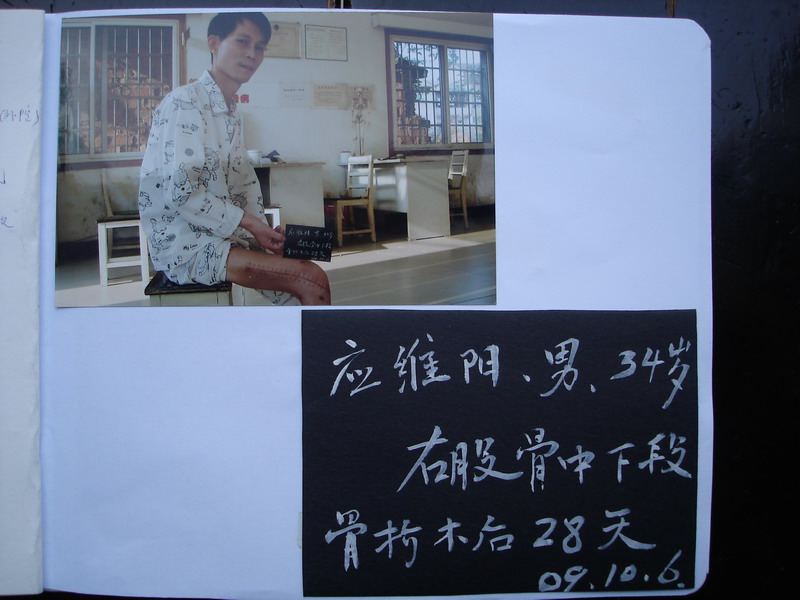 应维阳、男、34岁
右股骨中下段
骨折术后28天
09.10.6.